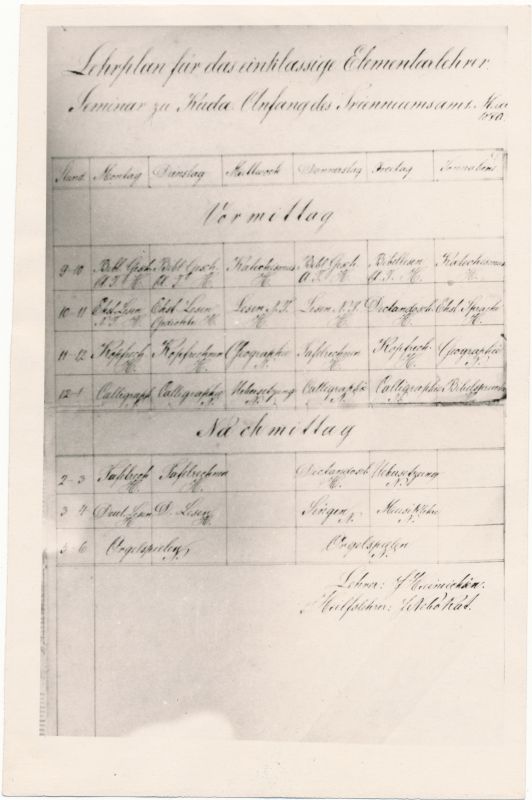 Lehrplan für das einklassige Elementarlehrer
Seminar zu Kuda. Anfang des Trienniums am 1. Mai
Stund. Montag Dienstag Mittwoch Donnerstag Freitag Sonnabend
Vormittag
9-10 Bibl. Gesch. Bibl. Gesch. Katechismus Bibl. Gesch. Bibellesen Katechismus
A. T. H. A. T. H. H. A. T. H. A. T. H. H.
10-11 Ehst. Lesen Ehst. Lesen Lesen N. T. Lesen N. T. Ehst. Sprache
11-12 Kopfrech. Kopfrechnen Geographie Tafelrechnen Kopfrech. Geographie
12-1 Calligraph. Calligraphie Uebersetzung Calligraphie Calligraphie
Nachmittag
2-3 Tafelrech. Tafelrechnen Uebersetzung
3-4 Deut. Lesen D. Lesen Singen Musiklehre
5-6 Orgelspielen Orgelspielen
Lehrer: J. Heinrichsen.
Hülfslehrer: